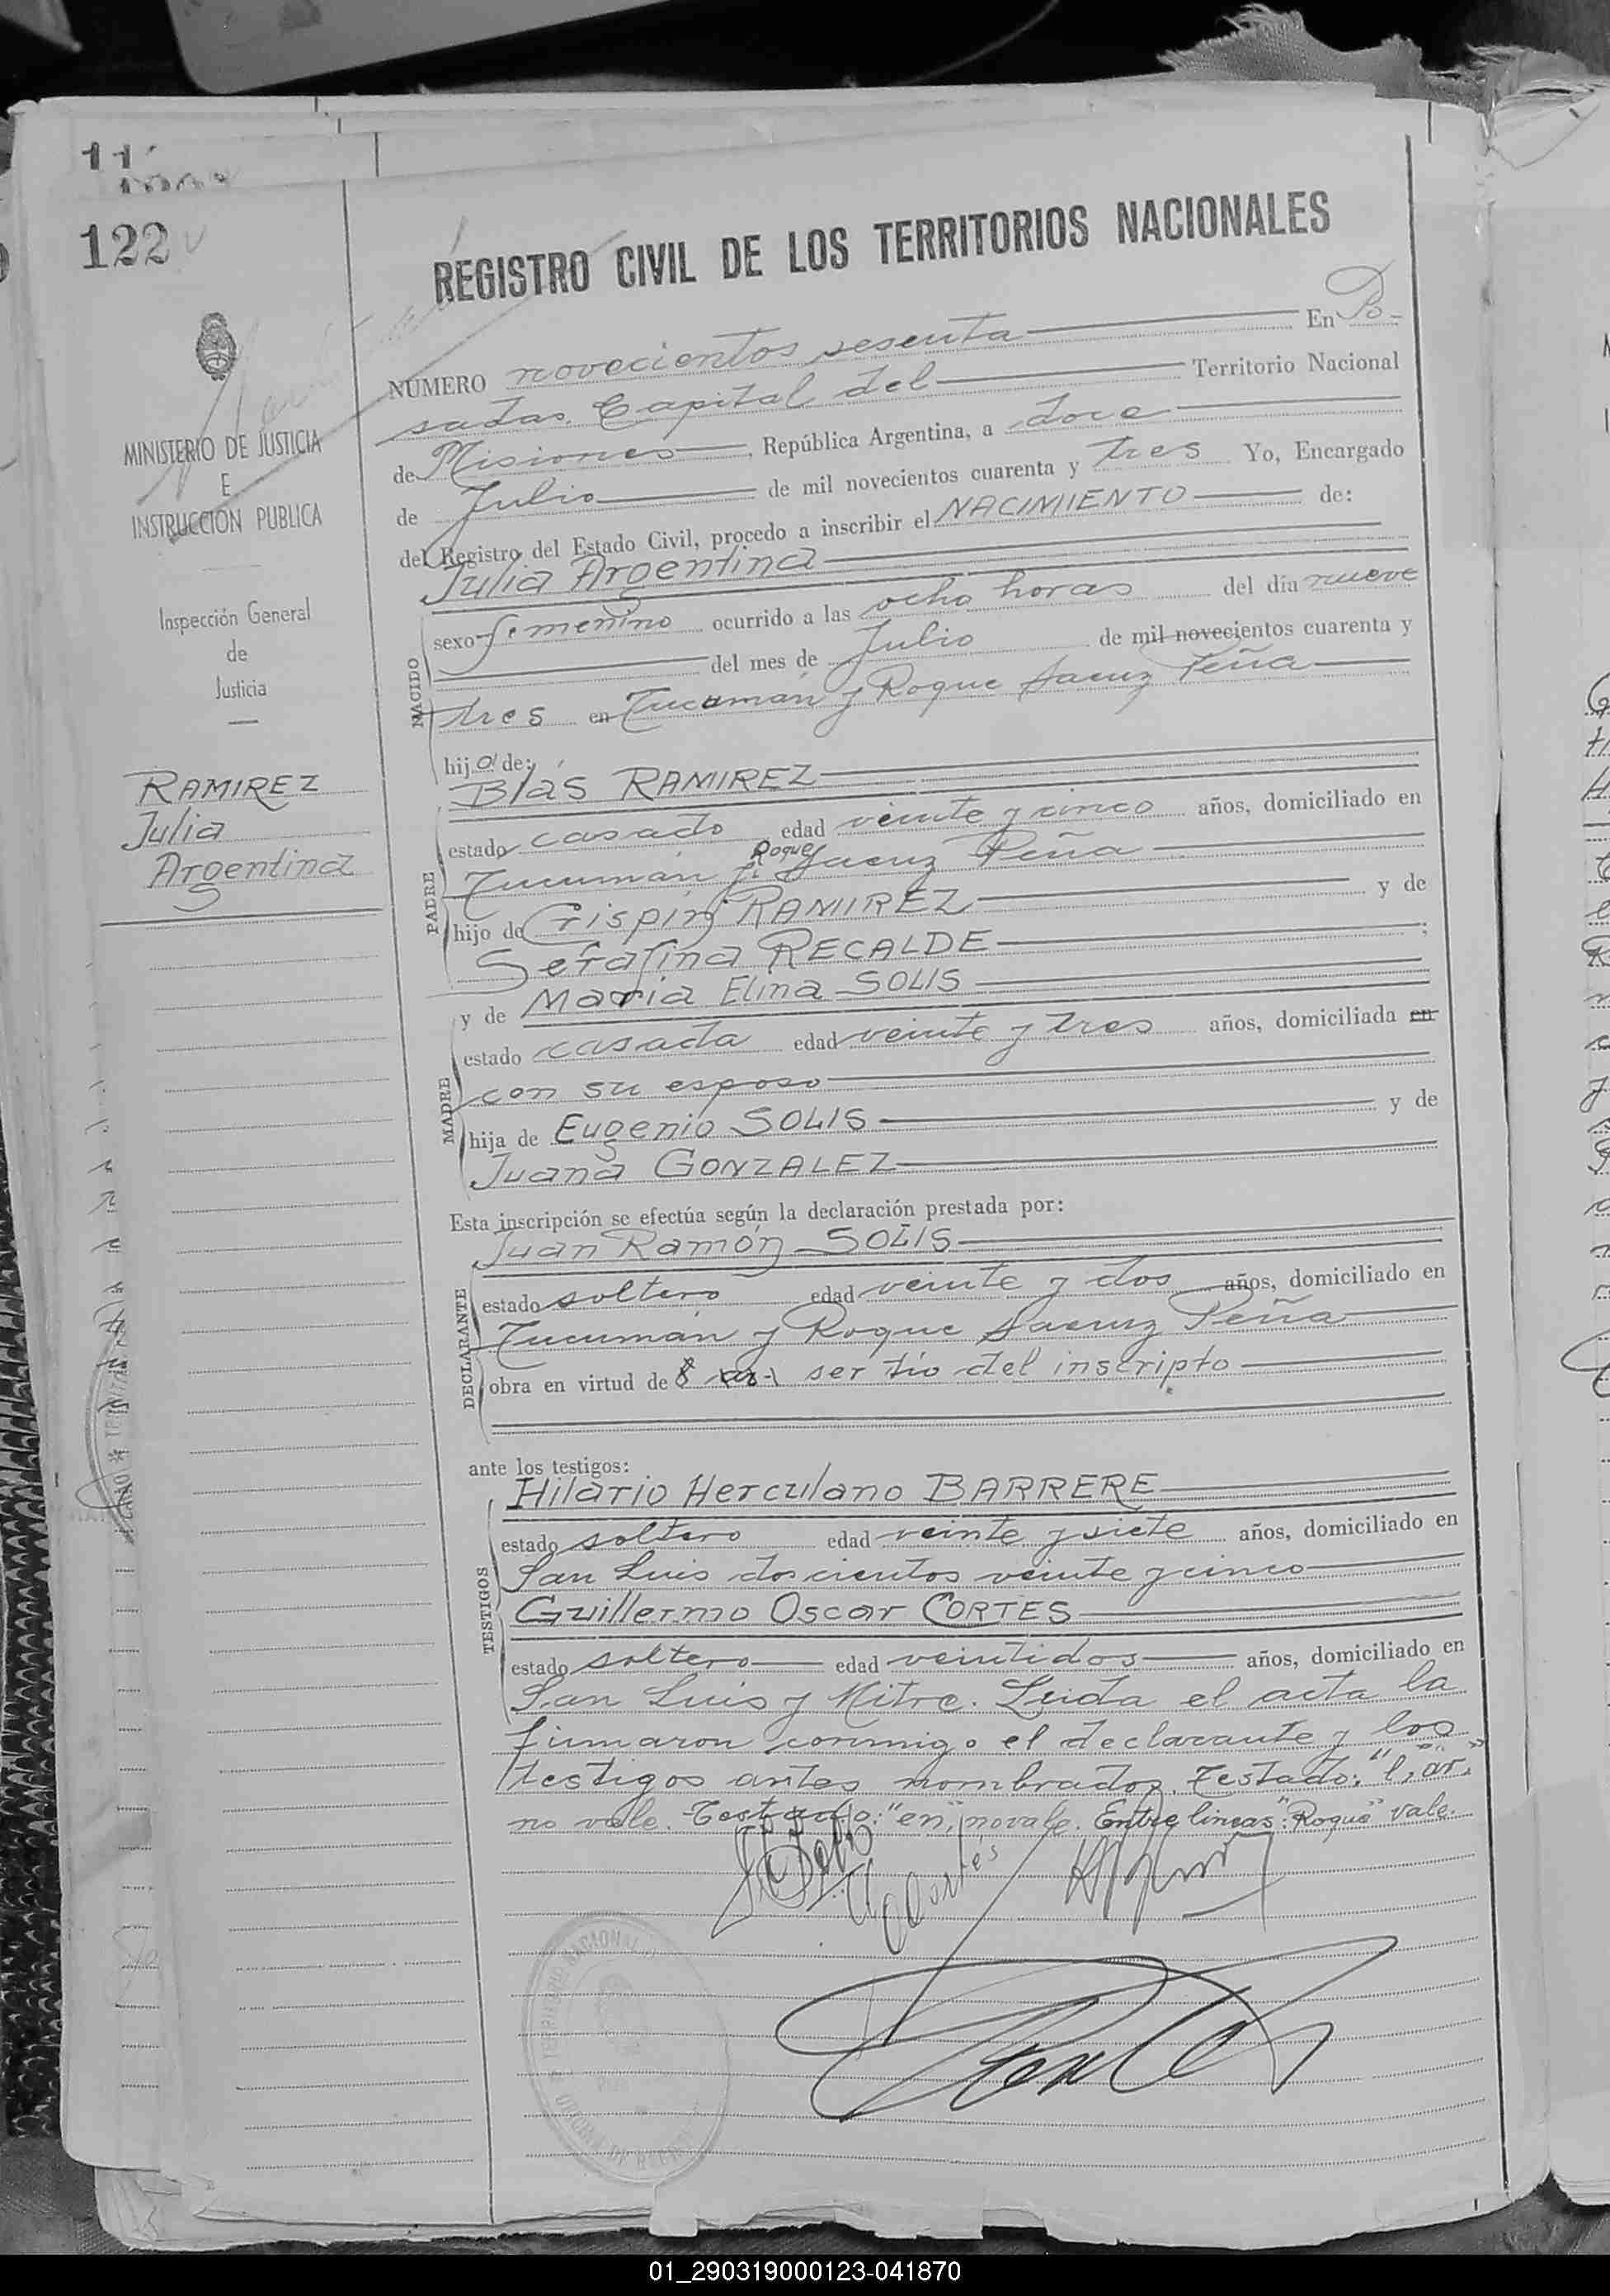 122
MINISTERIO DE JUSTICIA
E
INSTRUCCIÓN PUBLICA
Inspección General
de
Justicia
RAMIREZ
Julia
Argentina
REGISTRO CIVIL DE LOS TERRITORIOS NACIONALES
NÚMERO novecientos sesenta En Po-
sadas. Capital del Territorio Nacional
de Misiones, República Argentina, a doce
de Julio de mil novecientos cuarenta y tres Yo, Encargado
del Registro del Estado Civil, procedo a inscribir el NACIMIENTO de:
Julia Argentina
NACIDO
sexo femenino ocurrido a las ocho horas del día nueve
del mes de Julio de mil novecientos cuarenta y
tres en Tucumán y Roque Saenz Peña
hija de:
PADRE
Blás RAMIREZ
estado casado edad veinte y cinco años, domiciliado en
Tucumán y Roque Saenz Peña
hijo de Crispín RAMIREZ y de
Serafina RECALDE;
MADRE
y de Maria Elina SOLIS
estado casada edad veinte y tres años, domiciliada en
con su esposo
hija de Eugenio SOLIS y de
Juana GONZALEZ
Esta inscripción se efectúa según la declaración prestada por:
DECLARANTE
Juan Ramón SOLIS
estado soltero edad veinte y dos años, domiciliado en
Tucumán y Roque Saenz Peña
obra en virtud de ser tío del inscripto
ante los testigos:
TESTIGOS
Hilario Herculano BARRERE
estado soltero edad veinte y siete años, domiciliado en
San Luis doscientos veinte y cinco
Guillermo Oscar CORTES
estado soltero edad veintidos años, domiciliado en
San Luis y Mitre. Leida el acta la
firmaron conmigo el declarante y los
testigos antes nombrados. Testado:
no vale. Testado: "en", no vale. Entre lineas: "Roque" vale.
01_290319000123-041870